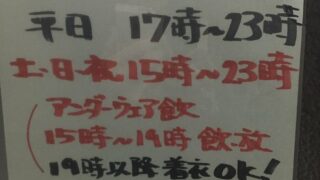 平日 17時~23時
土・日・祝 15時~23時
アンダーウェア飲
15時~19時 飲・放
19時以降着衣OK!